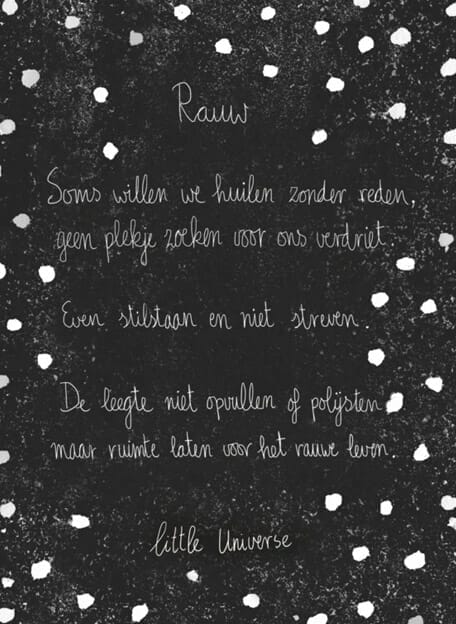 Rauw
Soms willen we huilen zonder reden,
geen plekje zoeken voor ons verdriet.
Even stilstaan en niet streven.
De leegte niet opvullen of polijsten
maar ruimte laten voor het rauwe leven.
little Universe